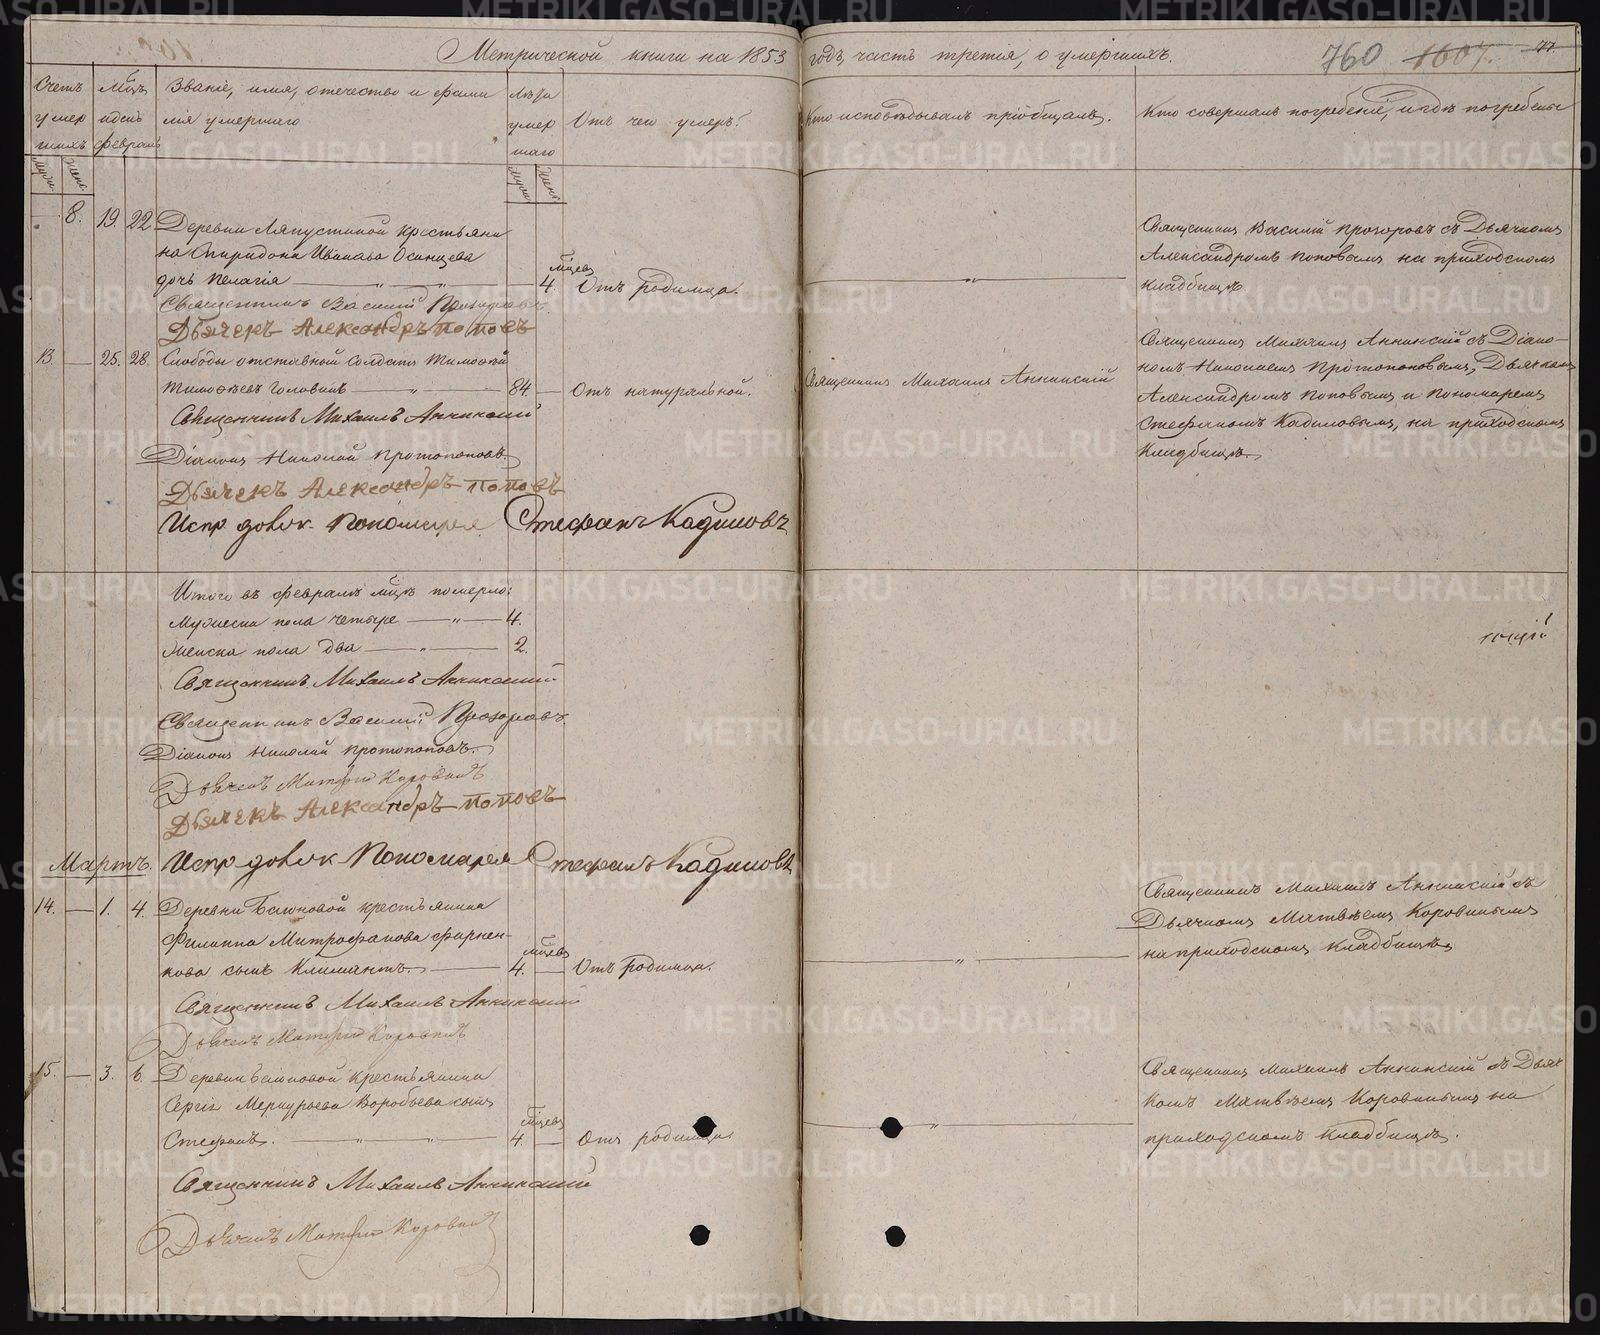 Метрической книги на 1853 годъ, часть третія, о умершихъ.
760 1607. 77
Счетъ умер шихъ
Мцъ и день февраль
Званіе, имя, отечество и фами
лія умершаго
Лѣта умер шаго
Отъ чего умеръ?
Кто исповѣдывалъ и пріобщалъ.
Кто совершалъ погребеніе, и гдѣ погребены
Муж. Жен. Муж. Жен.
8. 19. 22
Деревни Ляпустиной крестьяни
на Спиридона Иванова Осинцева
дочь Пелагія — „ — „ — 4. мцевъ Отъ родимца.
Священникъ Василій Прозоровъ съ Дьячкомъ
Александромъ Поповымъ на приходскомъ
кладбищѣ.
Священникъ Василій Прозоровъ.
Дьячекъ Александръ Поповъ
13. — 25. 28.
Слободы отставный солдатъ Тимофей
Тимофѣевъ Головинъ — „ — 84. — Отъ натуральной.
Священникъ Михаилъ Аннинскій
Священникъ Михаилъ Аннинскій съ Діако-
номъ Николаемъ Протопоповымъ, Дьячкомъ
Александромъ Поповымъ и Пономаремъ
Стефаномъ Кадиловымъ, на приходскомъ
кладбищѣ.
Священникъ Михаилъ Аннинский
Діаконъ Николай Протопоповъ.
Дьячекъ Александръ Поповъ
Испр. долж. Пономаря Стефанъ Кадиловъ
Итого въ февралѣ мцѣ померло:
Мужеска пола четыре — „ — 4.
Женска пола два — „ — 2.
Священникъ Михаилъ Аннинский
Священникъ Василій Прозоровъ.
Діаконъ Николай Протопоповъ.
Дьячекъ Матфій Коровинъ
Дьячекъ Александръ Поповъ
Испр долж Пономаря Стефанъ Кадиловъ
Мартъ.
14. — 1. 4.
Деревни Баюновой крестьянина
Филиппа Митрофанова
кова сынъ Климантъ. — 4. мцевъ — Отъ родимца.
Священникъ Михаилъ Аннинскій съ
Дьячкомъ Матвѣемъ Коровинымъ
на приходскомъ кладбищѣ.
Священникъ Михаилъ Аннинский
Дьячекъ Матфій Коровинъ
15. — 3. 6.
Деревни Баюновой крестьянина
Сергія Меркурьева Воробьева сынъ
Стефанъ. — „ — „ — 4 мцевъ — Отъ родимца.
Священникъ Михаилъ Аннинскій съ Дьяч
комъ Матвѣемъ Коровинымъ на
приходскомъ кладбищѣ.
Священникъ Михаилъ Аннинский
Дьячекъ Матфій Коровинъ
METRIKI.GASO-URAL.RU